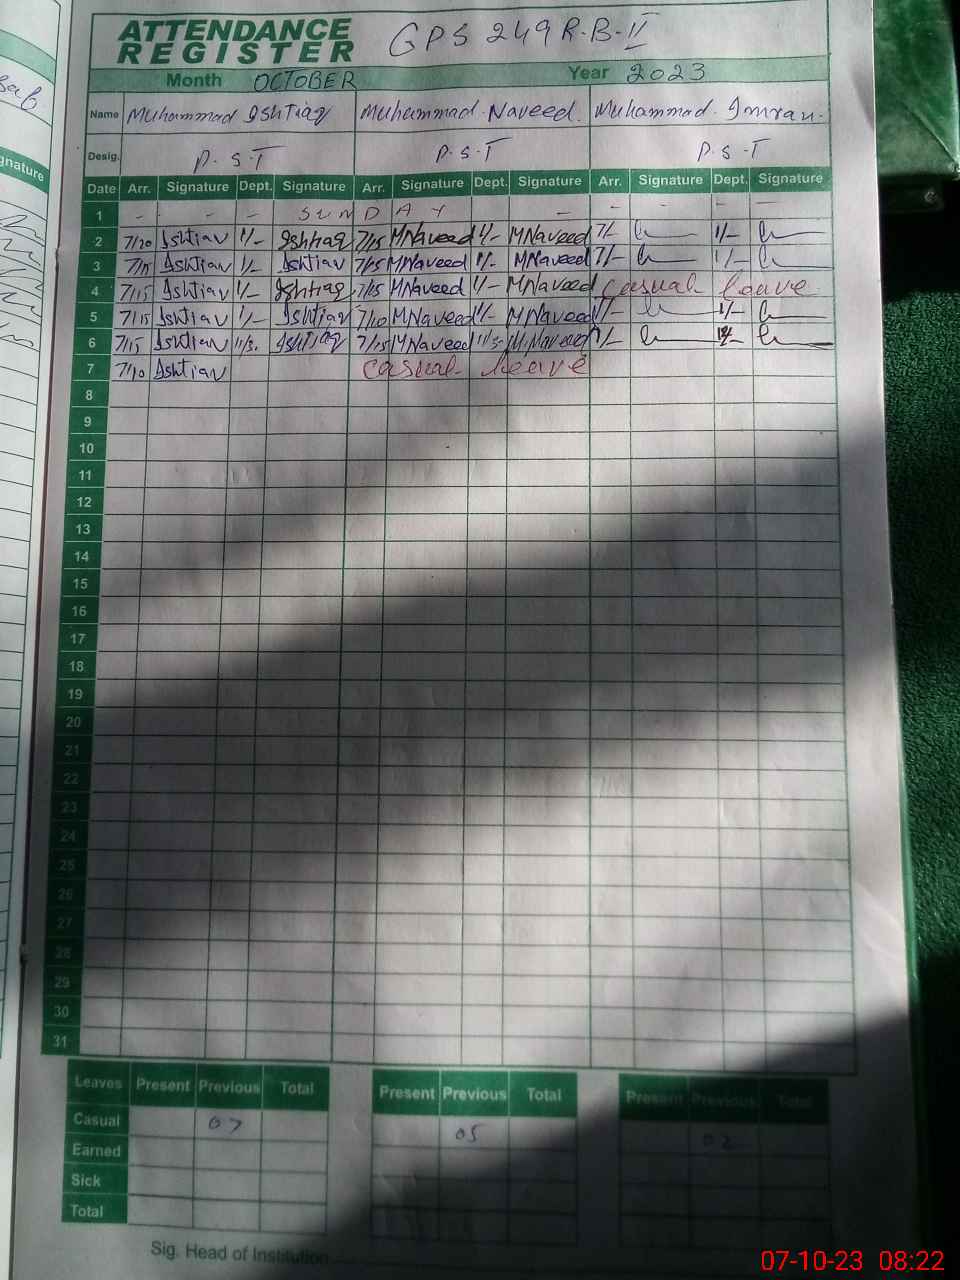 ATTENDANCE REGISTER GPS 249 R.B-II
Month OCTOBER Year 2023
Name Muhammad Ishtiaq Muhammad Naveed. Muhammad Imran.
Desig. P.S.T P.S.T P.S.T
Date Arr. Signature Dept. Signature Arr. Signature Dept. Signature Arr. Signature Dept. Signature
1 - - - SUNDAY - - - - -
2 7/20 Ishtiaq 1/- Ishtiaq 7/15 MNaveed 1/- MNaveed 7/- 1/-
3 7/15 Ishtiaq 1/- Ishtiaq 7/15 MNaveed 1/- MNaveed 7/- 1/-
4 7/15 Ishtiaq 1/- Ishtiaq 7/15 MNaveed 1/- MNaveed casual leave
5 7/15 Ishtiaq 1/- Ishtiaq 7/10 MNaveed 1/- MNaveed 7/- 1/-
6 7/15 Ishtiaq 11/3. Ishtiaq 7/15 MNaveed 11/3- M.Naveed 7/-
7 7/10 Ishtiaq casual leave
8
9
10
11
12
13
14
15
16
17
18
19
20
21
22
23
24
25
26
27
28
29
30
31
Leaves Present Previous Total Present Previous Total Present Previous Total
Casual 07 05 02
Earned
Sick
Total
Sig. Head of Institution
07-10-23 08:22